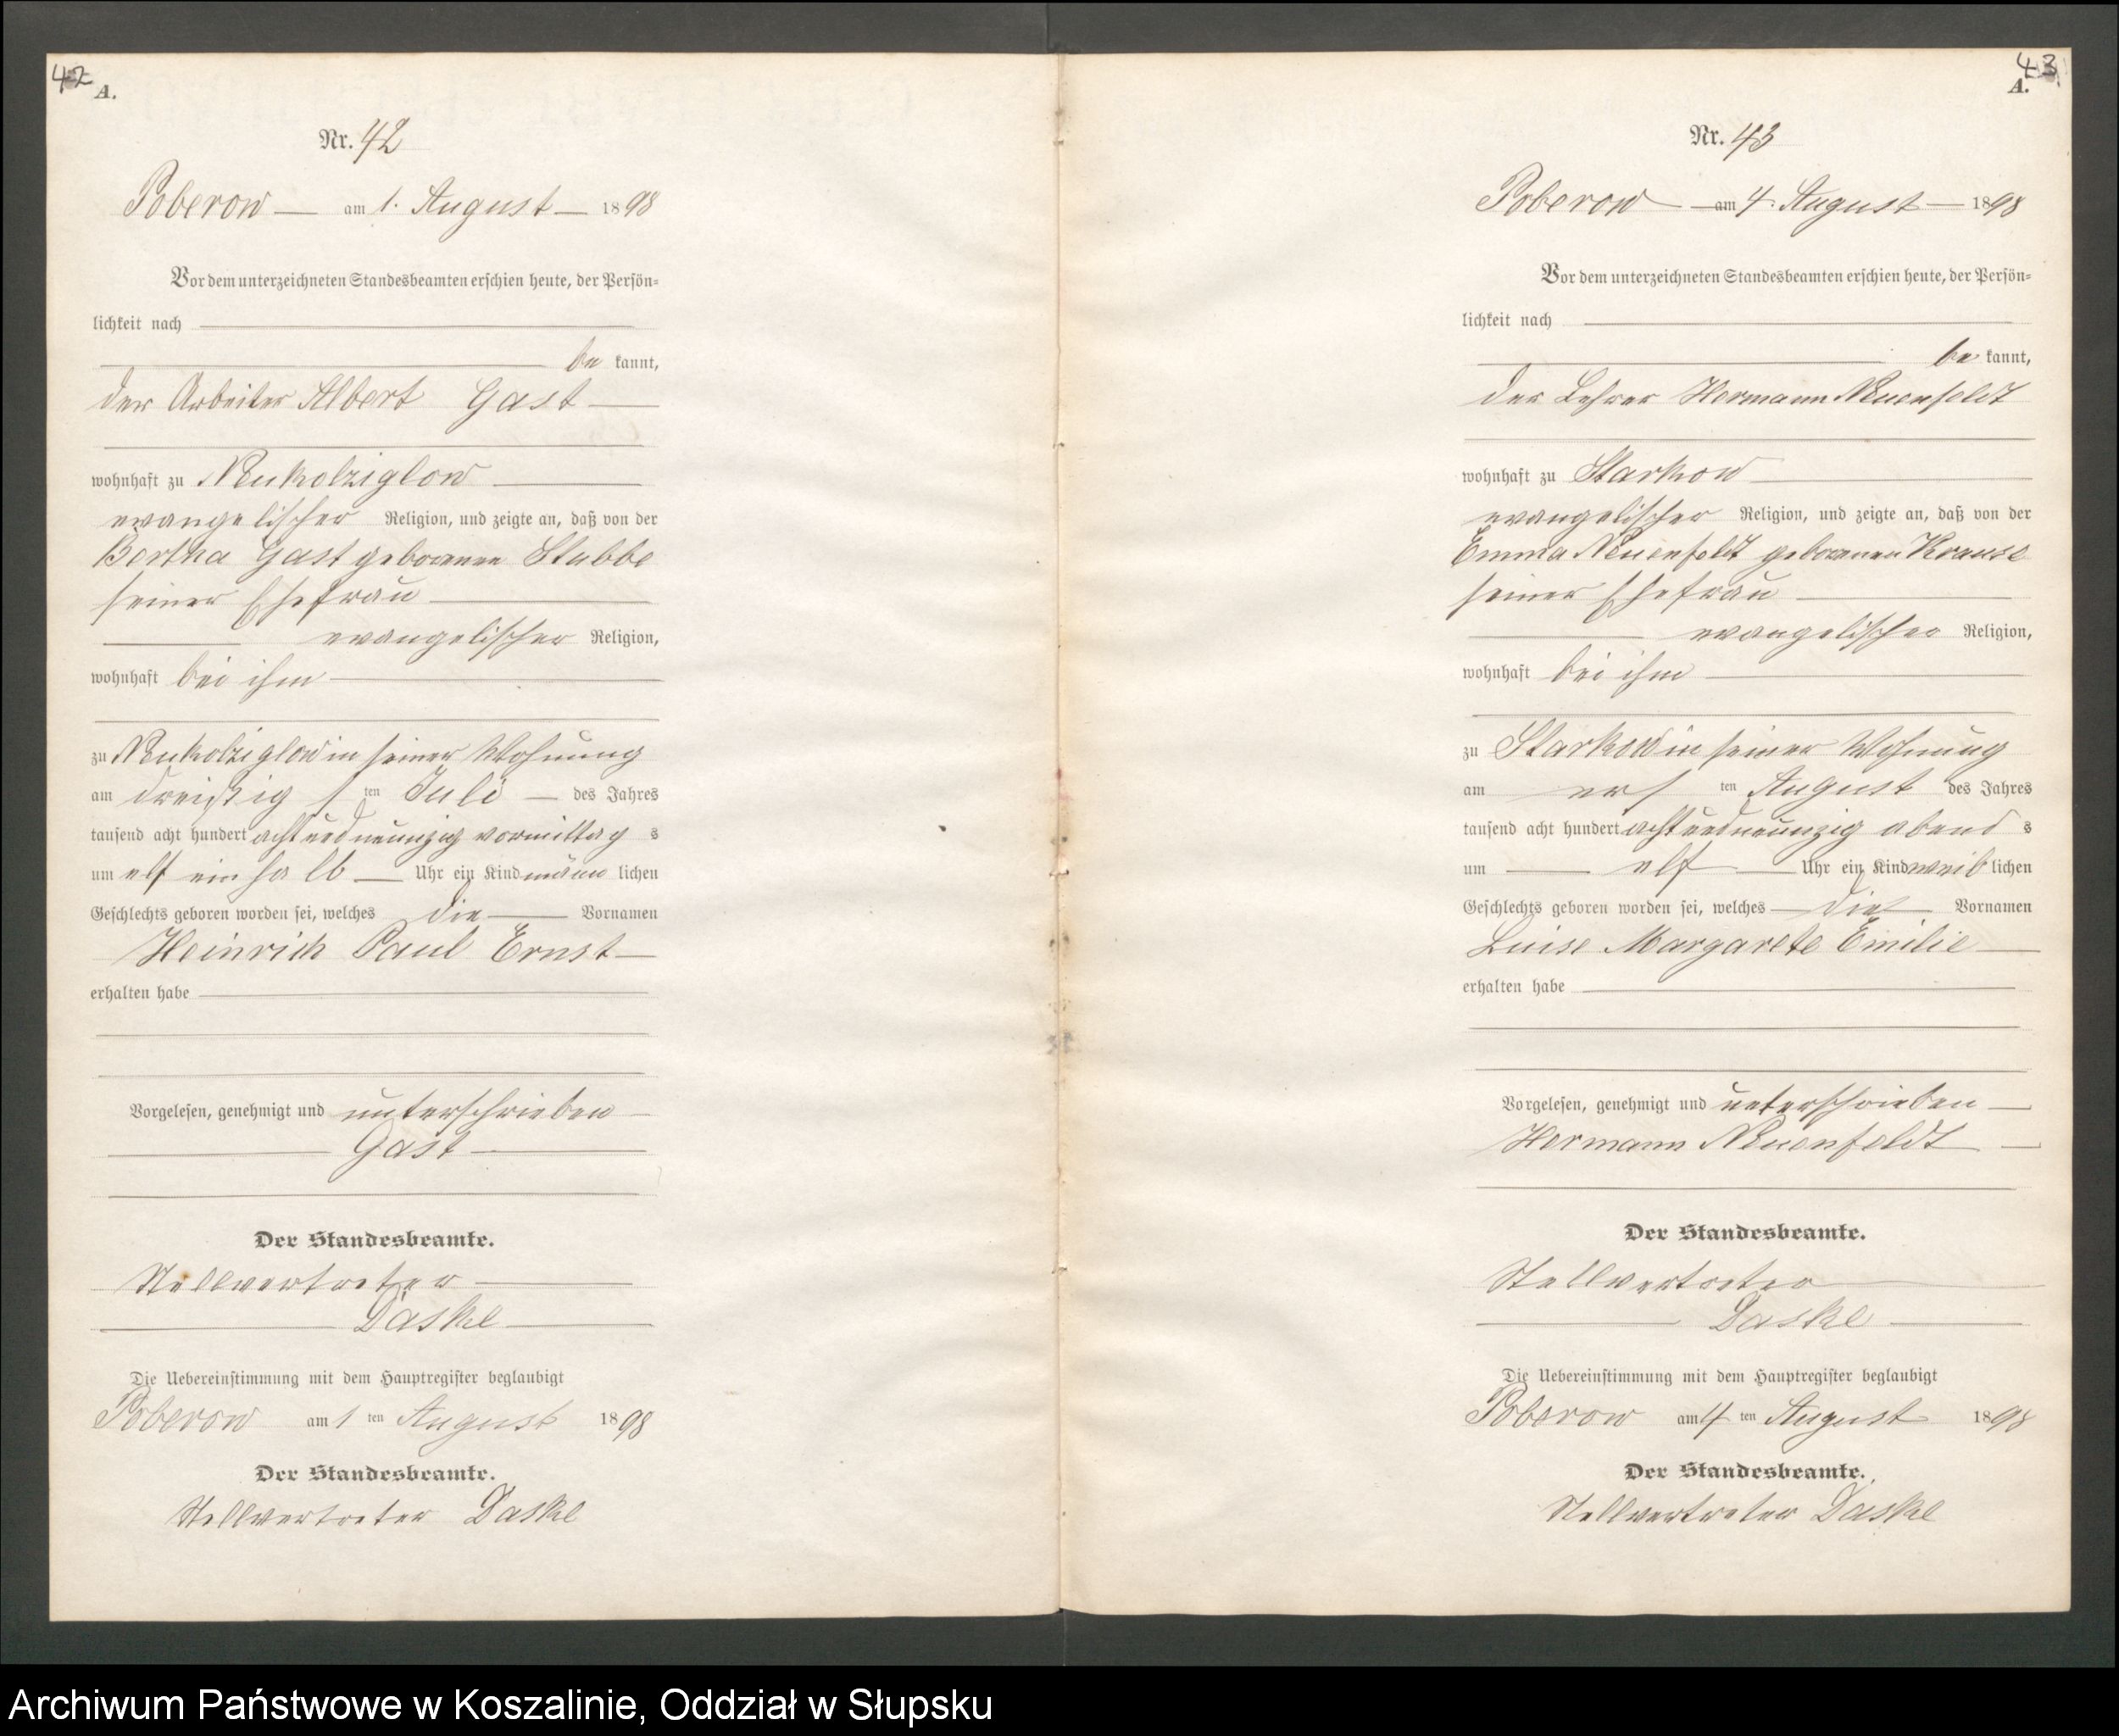 42
A.
Nr. 42
Poberow am 1. August 1898
Vor dem unterzeichneten Standesbeamten erschien heute, der Persön=
lichkeit nach
be kannt,
der Arbeiter Albert Gast
wohnhaft zu Neukolziglow
evangelischer Religion, und zeigte an, daß von der
Bertha Gast geborenen Stubbe
seiner Ehefrau
evangelischer Religion,
wohnhaft bei ihm
zu Neukolziglow in seiner Wohnung
am dreißigsten Juli des Jahres
tausend acht hundert achtundneunzig vormittags
um elf ein halb Uhr ein Kind männlichen
Geschlechts geboren worden sei, welches die Vornamen
Heinrich Paul Ernst
erhalten habe
Vorgelesen, genehmigt und unterschrieben
Gast
Der Standesbeamte.
Stellvertreter
Daske
Die Uebereinstimmung mit dem Hauptregister beglaubigt
Poberow am 1 ten August 1898
Der Standesbeamte.
Stellvertreter Daske
43
A.
Nr. 43
Poberow am 4. August 1898
Vor dem unterzeichneten Standesbeamten erschien heute, der Persön=
lichkeit nach
be kannt,
der Lehrer Hermann Neuenfeldt
wohnhaft zu Starkow
evangelischer Religion, und zeigte an, daß von der
Emma Neuenfeldt geborenen Krause
seiner Ehefrau
evangelischer Religion,
wohnhaft bei ihm
zu Starkow in seiner Wohnung
am ersten August des Jahres
tausend acht hundert achtundneunzig abends
um elf Uhr ein Kind weiblichen
Geschlechts geboren worden sei, welches die Vornamen
Luise Margarete Emilie
erhalten habe
Vorgelesen, genehmigt und unterschrieben
Hermann Neuenfeldt
Der Standesbeamte.
Stellvertreter
Daske
Die Uebereinstimmung mit dem Hauptregister beglaubigt
Poberow am 4 ten August 1898
Der Standesbeamte.
Stellvertreter Daske
Archiwum Państwowe w Koszalinie, Oddział w Słupsku